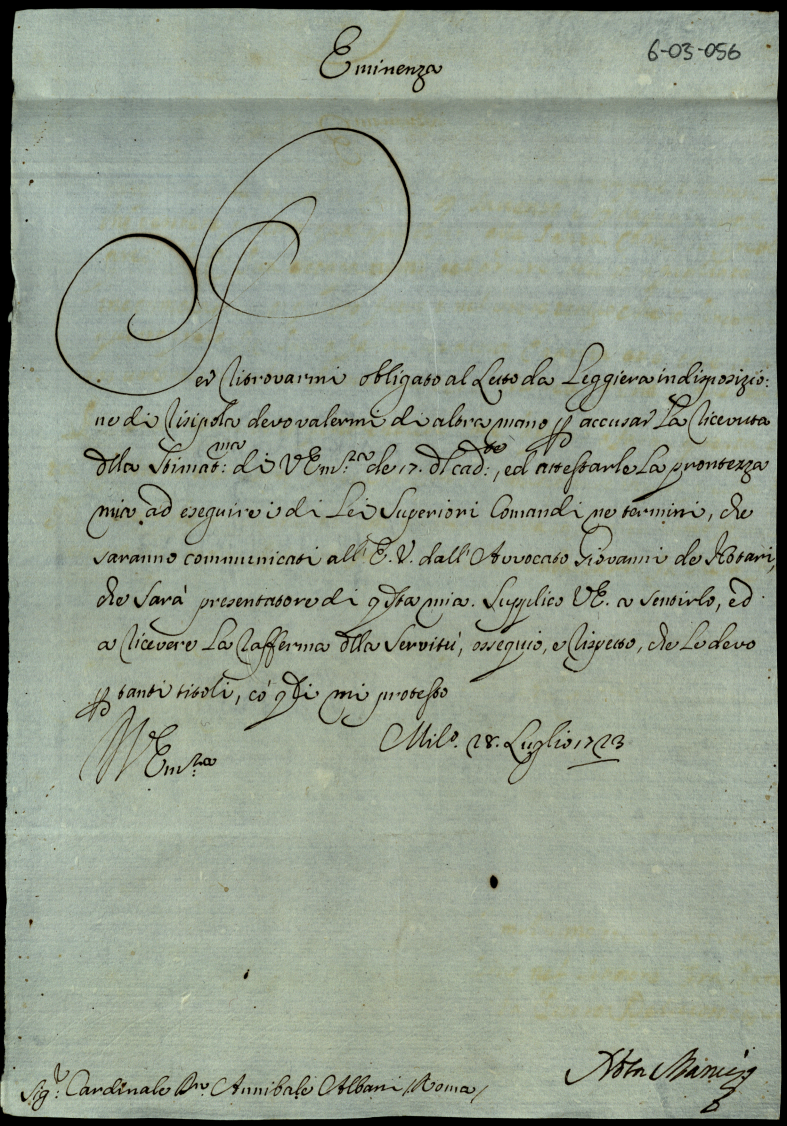 Eminenza
6-03-056
Per ritrovarmi obligato al Letto da Leggiera indisposizio:
ne di risipola devo valermi di altra mano p accusar La riceuta
dlla Stimat:ma di VEm:za de 17. dl cad:te, ed' attestarle La prontezza
mia ad eseguire i di Lei Superiori Comandi ne termini, che
saranno communicati all' E. V. dall' Avvocato Giovanni de Notari,
che sarà presentatore di qsta mia. Supplico VE. a sentirlo, ed
a ricevere La rafferma dlla Servitù, ossequio, e rispetto, che Le devo
p tanti titoli, có qli mi protesto
VEm:za
Mil.o 28. Luglio 1723
Sig:r Cardinale Annibale Albani /Roma/